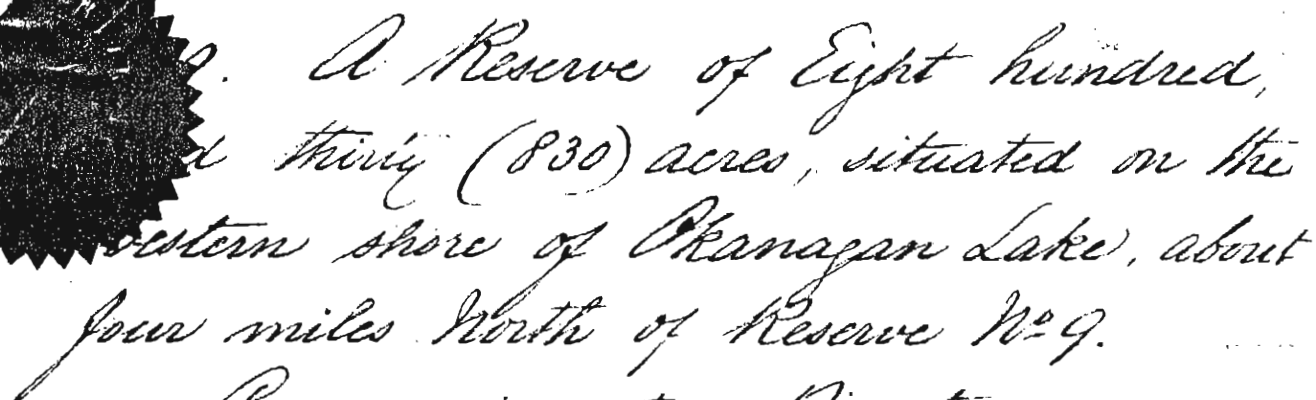 A Reserve of Eight hundred,
thirty (830) acres, situated on the
western shore of Okanagan Lake, about
four miles North of Reserve Nº 9.